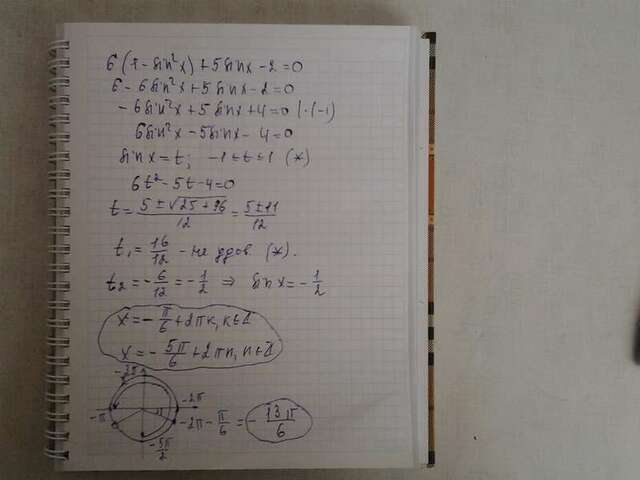 6(1-sin²x)+5sinx-2=0
6-6sin²x+5sinx-2=0
-6sin²x+5sinx+4=0 |·(-1)
6sin²x-5sinx-4=0
sinx=t; -1≤t≤1 (*)
6t²-5t-4=0
t=(5±√25+96)/12=(5±11)/12
t₁=16/12 - не удов. (*).
t₂=-6/12=-1/2 ⇒ sinx=-1/2
x=-π/6+2πk, k∈Z
x=-5π/6+2πn, n∈Z
-π
-2π
-2π-π/6=-13π/6
-5π/2